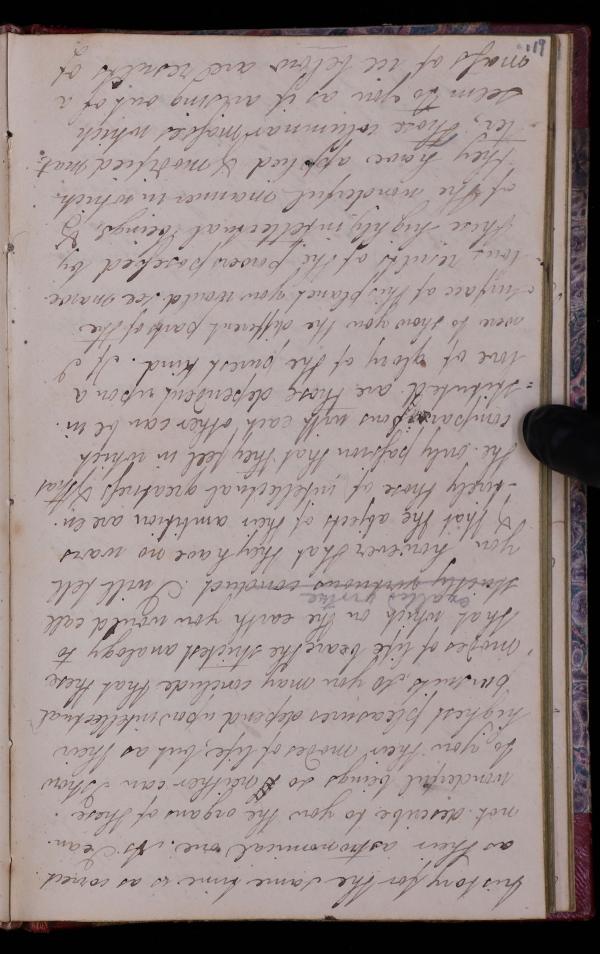 history for the same time is as correct
as their astronomical one. As I can-
not describe to you the organs of these
wonderful beings so neither can I show
to you their modes of life, but as their
highest pleasures depend upon intellectual
pursuits, so you may conclude that these
modes of life bear the strictest analogy to
that which on the earth you would call
exalted virtue
strictly virtuous conduct. I will tell
you however that they have no wars
& that the objects of their ambition are en-
-tirely those of intellectual greatness & that
the only passion that they feel in which
comparisons with each other can be in-
=stituted are those dependent upon a
love of glory of the purest kind. If I
were to show you the different parts of the
surface of this planet you would see marve-
lous results of the powers possessed by
these highly intellectual beings &
of the wonderful manner in which
they have applied & modified mat-
ter, those columnar masses which
seem to you as if arising out of a
mass of ice below are results of
119